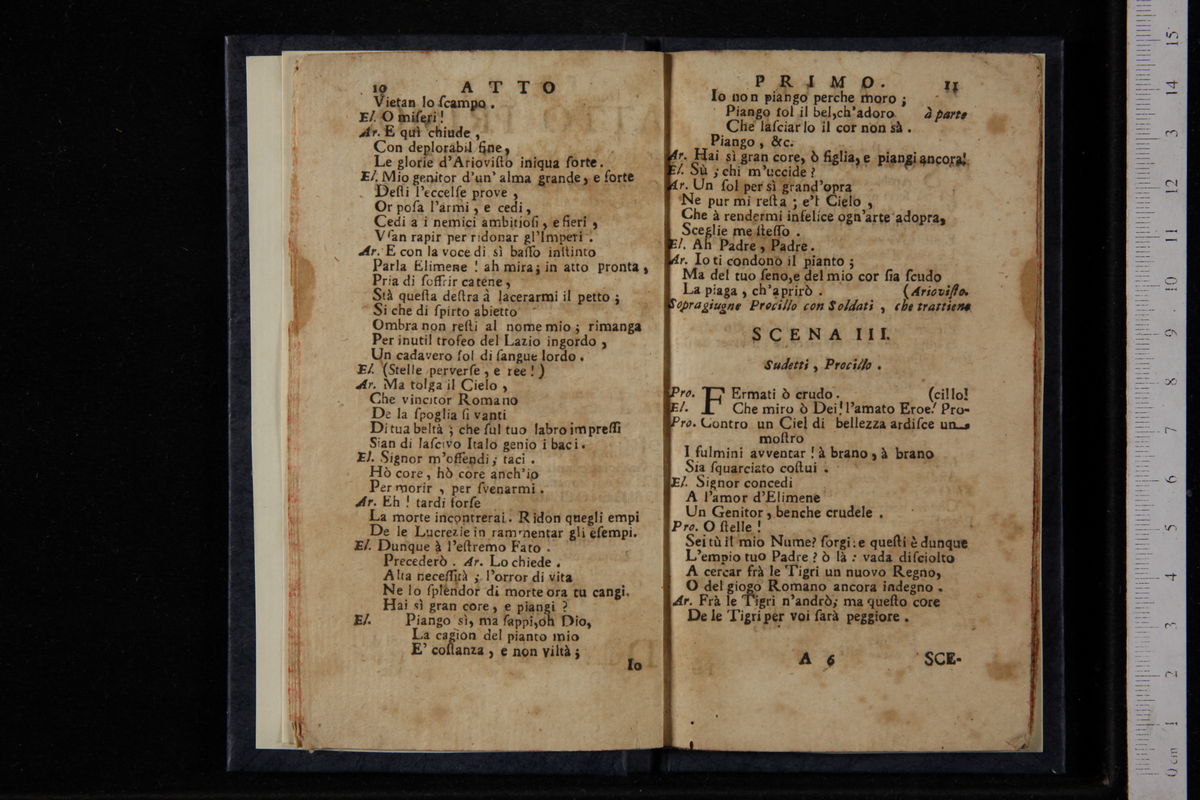 10 ATTO
Vietan lo ſcampo .
El. O miſeri !
Ar. E quì chiude ,
Con deplorabil fine,
Le glorie d'Arioviſto iniqua ſorte .
El. Mio genitor d'un' alma grande, e forte
Deſti l'eccelſe prove ,
Or poſa l'armi , e cedi ,
Cedi a i nemici ambitioſi , e fieri ,
Van rapir per ridonar gl'Imperi .
Ar. E con la voce di sì baſſo inſtinto
Parla Elimene ! ah mira; in atto pronta ,
Pria di ſoffrir catene ,
Stà queſta deſtra à lacerarmi il petto ;
Si che di ſpirto abietto
Ombra non reſti al nome mio ; rimanga
Per inutil trofeo del Lazio ingordo ,
Un cadavero ſol di ſangue lordo .
El. (Stelle perverſe , e ree ! )
Ar. Ma tolga il Cielo ,
Che vincitor Romano
De la ſpoglia ſi vanti
Di tua beltà ; che ſul tuo labro impreſſi
Sian di laſcivo Italo genio i baci .
El. Signor m'offendi ; taci .
Hò core , hò core anch'io
Per morir , per ſvenarmi .
Ar. Eh ! tardi forſe
La morte incontrerai . Ridon quegli empi
De le Lucrezie in rammentar gli eſempi.
El. Dunque à l'eſtremo Fato .
Precederò . Ar. Lo chiede .
Alta neceſſità ; l'orror di vita
Ne lo ſplendor di morte ora tu cangi.
Hai sì gran core , e piangi ?
El. Piango sì, ma ſappi,oh Dio,
La cagion del pianto mio
E' coſtanza , e non viltà ;
Io
PRIMO. 11
Io non piango perche moro ;
Piango ſol il bel,ch'adoro à parte
Che laſciarlo il cor non sà .
Piango , &c.
Ar. Hai sì gran core, ò figlia, e piangi ancora!
El. Sù ; chi m'uccide ?
Ar. Un ſol per sì grand'opra
Ne pur mi reſta ; e'l Cielo ,
Che à rendermi infelice ogn'arte adopra,
Sceglie me ſteſſo .
El. Ah Padre , Padre .
Ar. Io ti condono il pianto ;
Ma del tuo ſeno,e del mio cor ſia ſcudo
La piaga , ch'aprirò . (Arioviſto.
Sopragiugne Procillo con Soldati , che trattiene
SCENA III.
Sudetti , Procillo .
Pro. FErmati ò crudo . (cillo!
El. Che miro ò Dei! l'amato Eroe! Pro-
Pro. Contro un Ciel di bellezza ardiſce un
moſtro
I fulmini avventar ! à brano , à brano
Sia ſquarciato coſtui .
El. Signor concedi
A l'amor d'Elimene
Un Genitor , benche crudele .
Pro. O ſtelle !
Sei tù il mio Nume? ſorgi: e queſti è dunque
L'empio tuo Padre ? ò là : vada diſciolto
A cercar frà le Tigri un nuovo Regno,
O del giogo Romano ancora indegno .
Ar. Frà le Tigri n'andrò; ma queſto core
De le Tigri per voi ſarà peggiore .
A 6 SCE-
15
14
13
12
11
10
9
8
7
6
5
4
3
2
1
0 cm